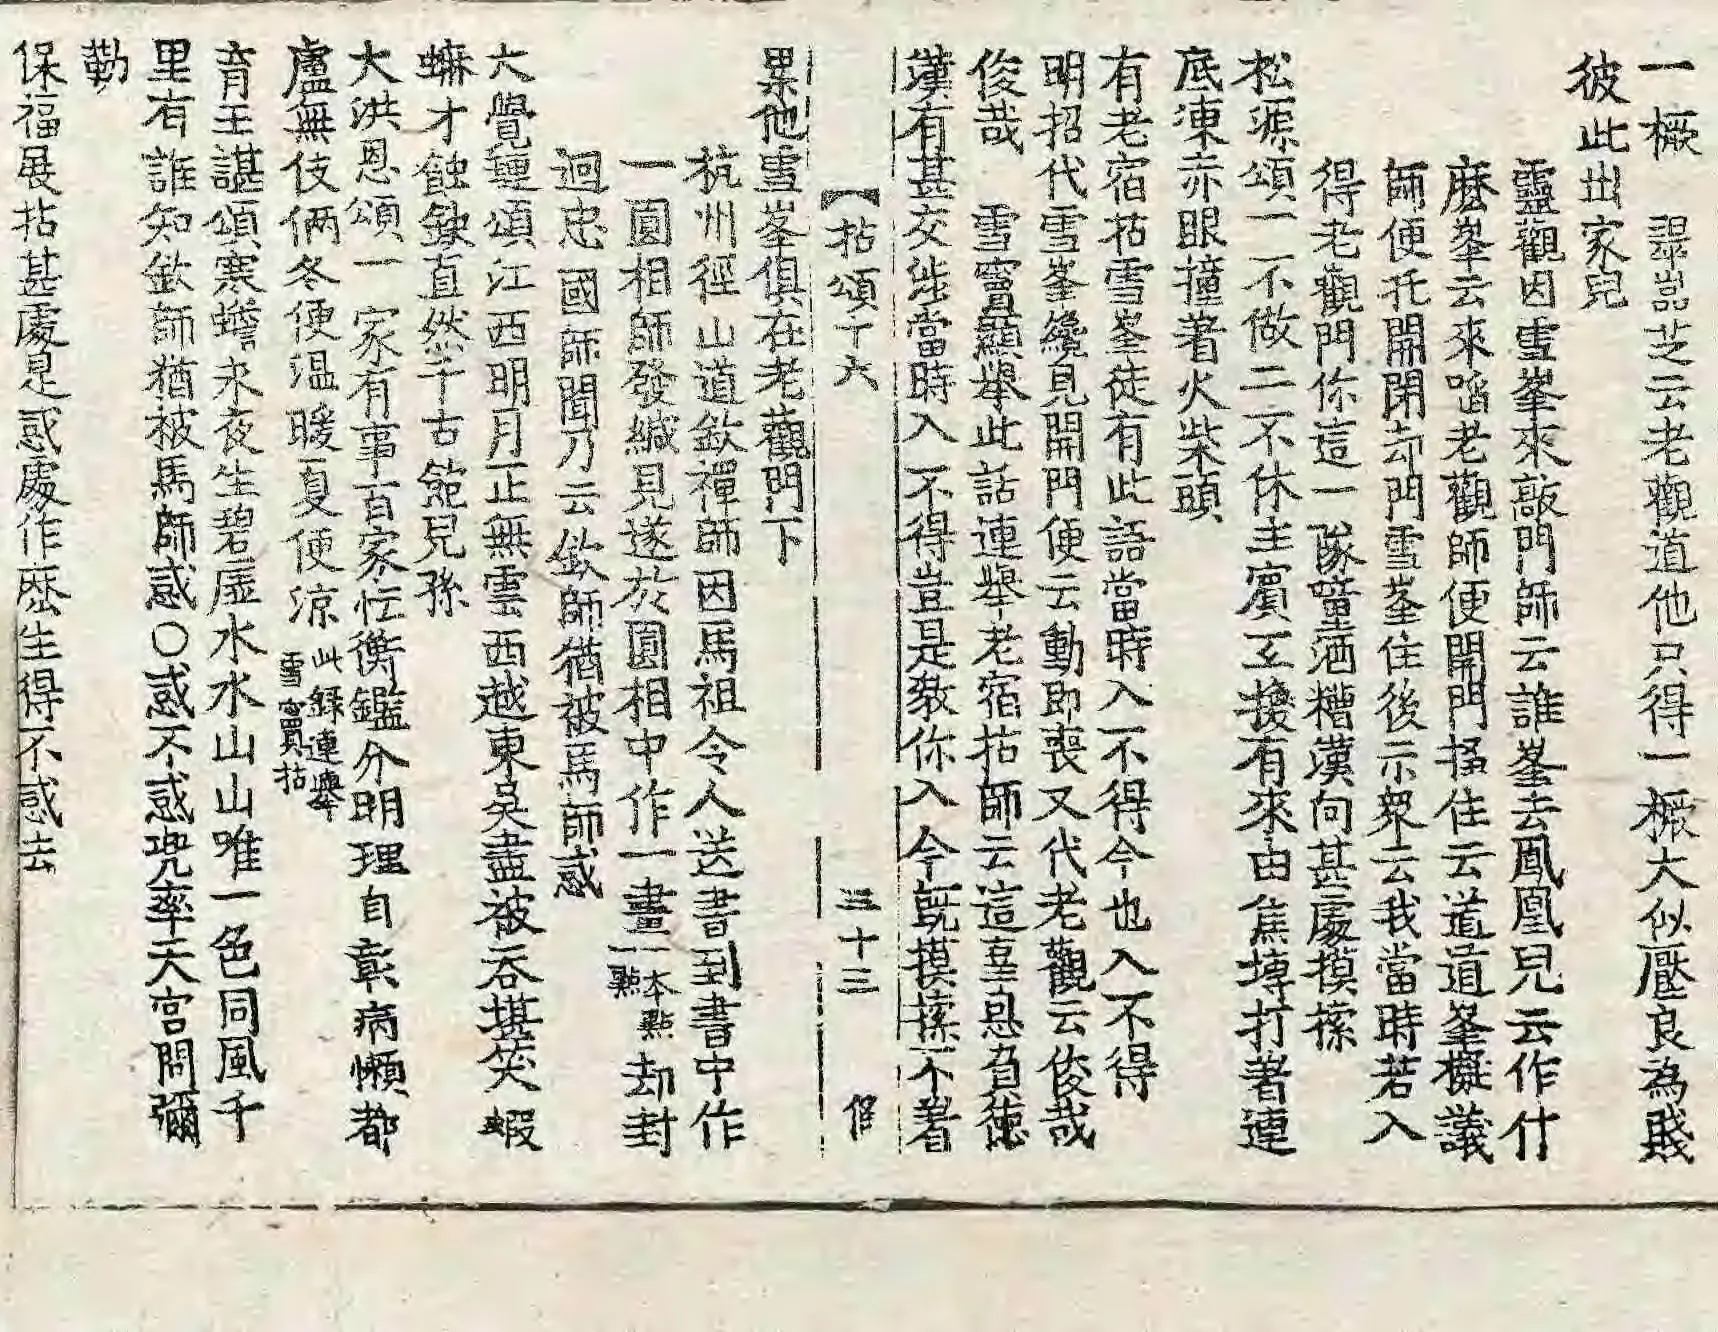 一橛　㵛嵓芝云老觀道他只得一橛大似壓良為賤
彼此出家兒
靈觀因雪峯來敲門師云誰峯云鳳凰兒云作什
麽峯云來㗖老觀師便開門搊住云道道峯擬議
師便托開閉却門雪峯住後示衆云我當時若入
得老觀門你這一隊噇酒糟漢向甚處摸㨹
松源頌一不做二不休主賓互換有來由焦塼打著連
底凍赤眼撞著火柴頭
有老宿拈雪峯徒有此語當時入不得今也入不得
明招代雪峯纔見開門便云動即喪又代老觀云俊哉
俊哉　雪竇顯擧此話連擧老宿拈師云這辜恩負德
漢有甚交涉當時入不得豈是教你入今旣摸㨹不着
【拈頌丁六　三十三　催
累他雪峯俱在老觀門下
杭州徑山道欽禪師因馬祖令人送書到書中作
一圓相師發緘見遂於圓相中作一畫一本點一點却封
迴忠國師聞乃云欽師猶被馬師惑
大覺璉頌江西明月正無雲西越東吳盡被吞堪笑蝦
蟆才蝕缺直然千古䬼兒孫
大洪恩頌一家有事百家忙衡鑑分明理自彰病懶都
盧無伎倆冬便温暖夏便涼此錄連擧雪竇拈
育王諶頌寒蟾來夜生碧虛水水山山唯一色同風千
里有誰知欽師猶被馬師惑〇惑不惑兜率天宮問彌
勒
保福展拈甚處是惑處作麽生得不惑去